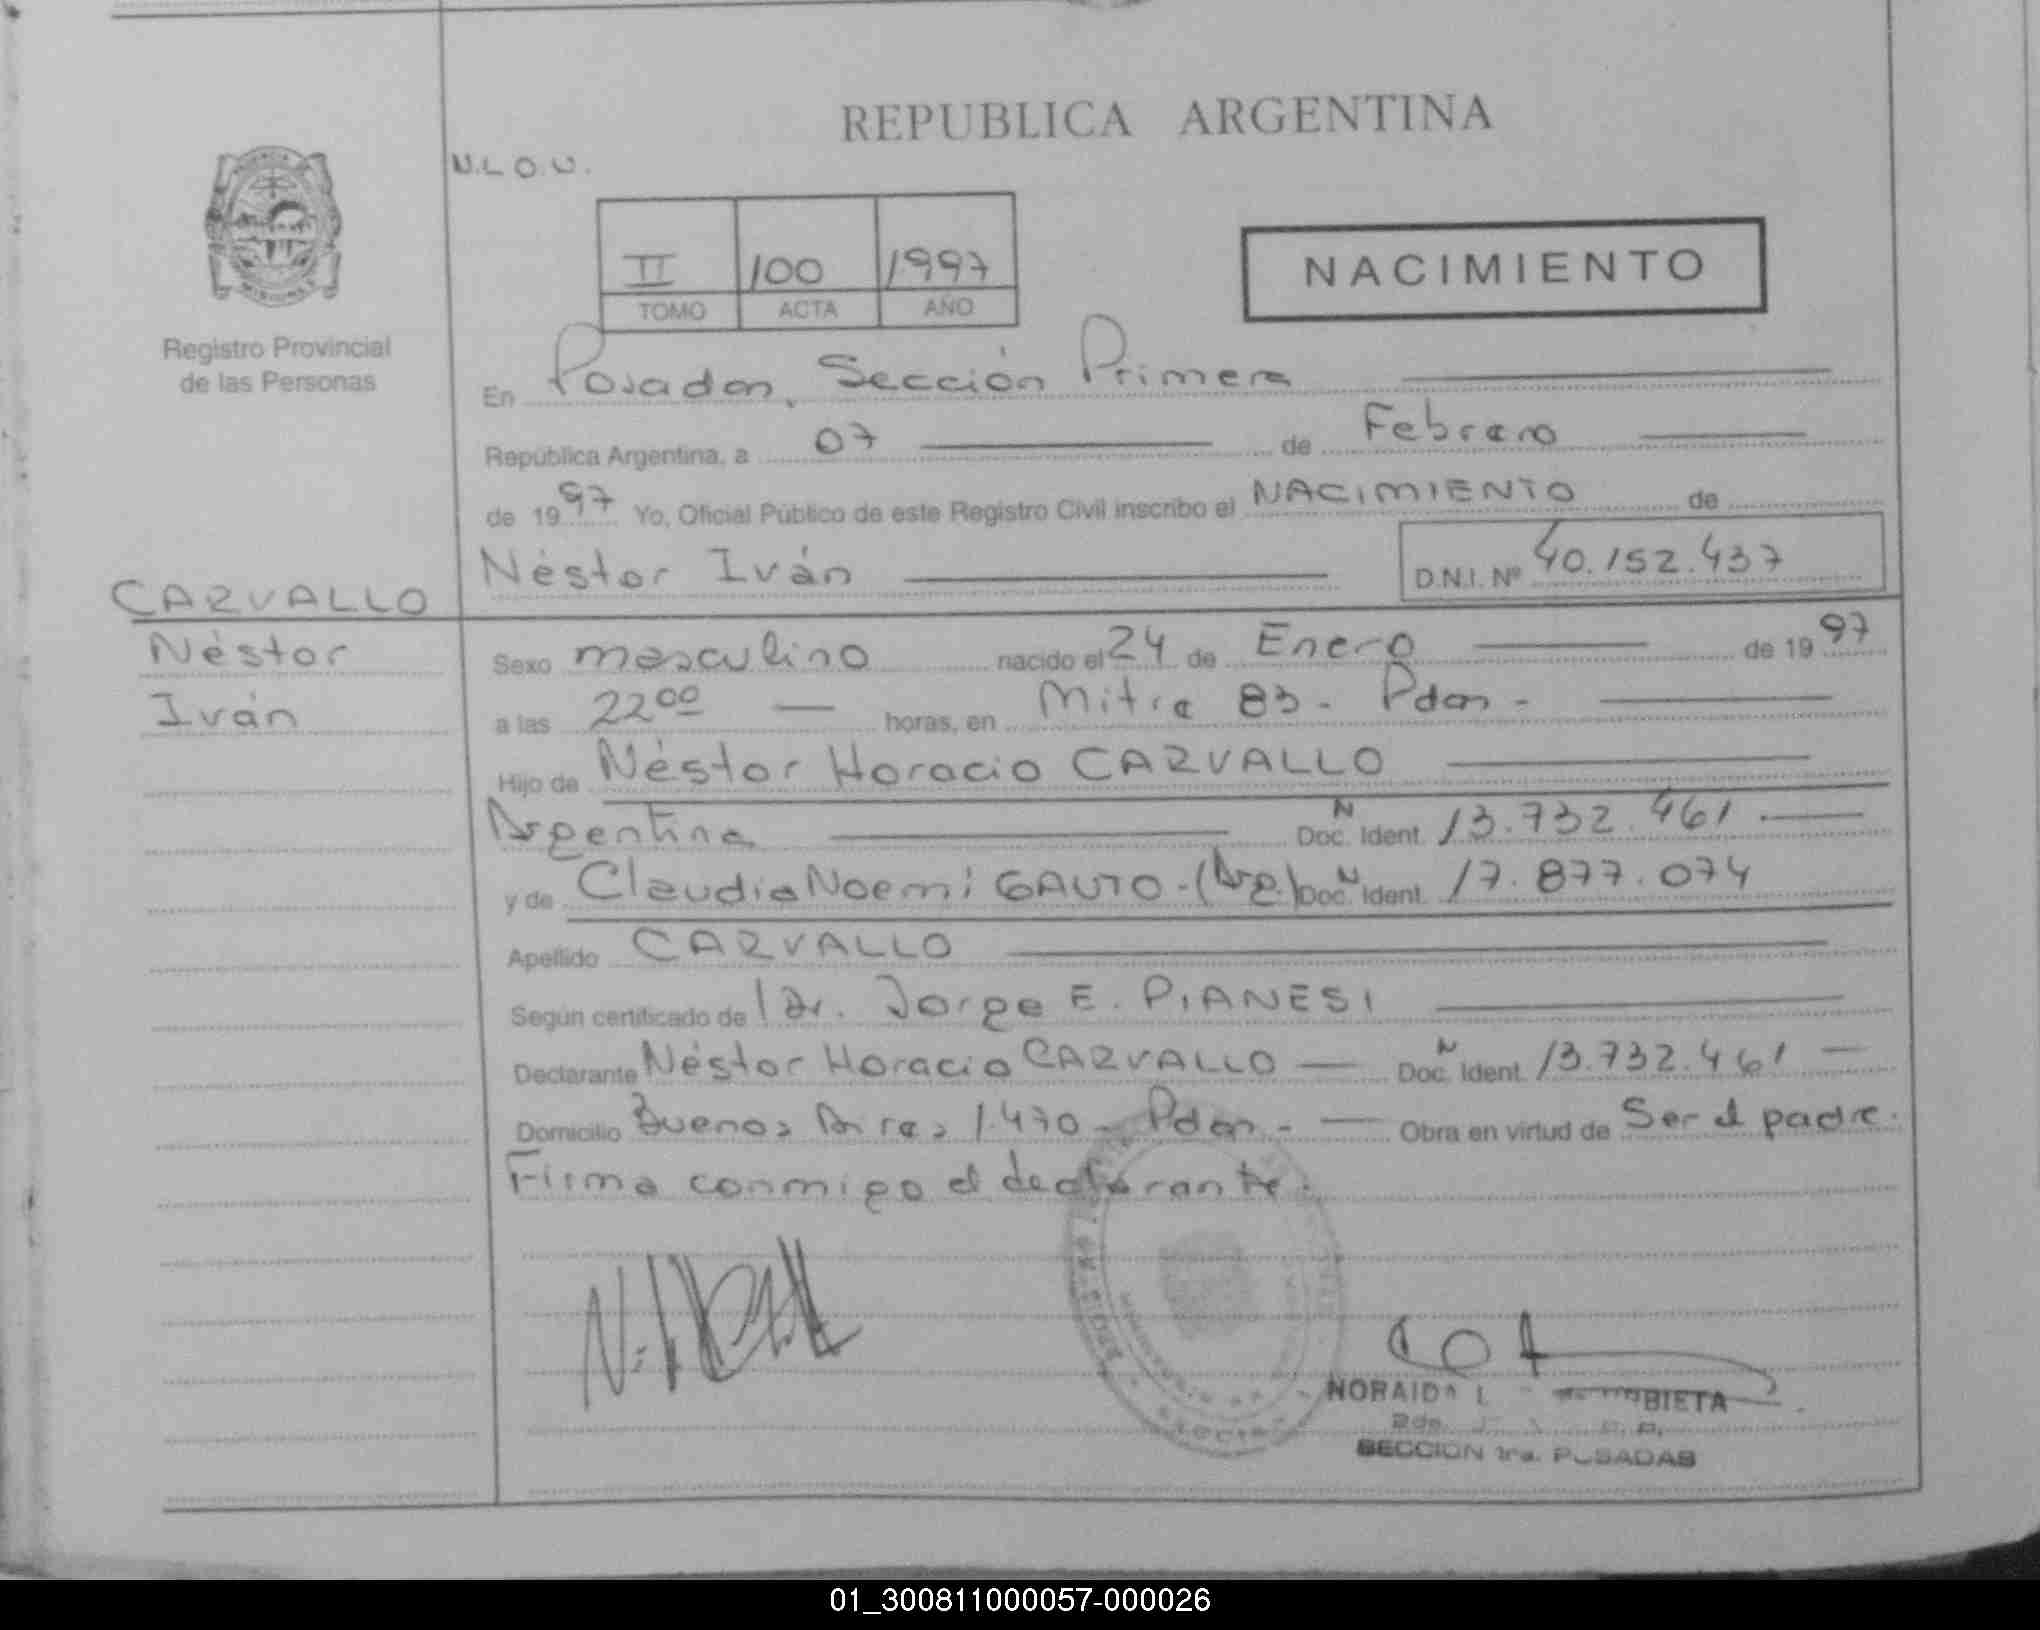 REPUBLICA ARGENTINA
N.L.O.U.
II 100 1997
TOMO ACTA AÑO
NACIMIENTO
PROVINCIA DE
MISIONES
Registro Provincial
de las Personas
En Posadas, Sección Primera
República Argentina, a 07 de Febrero
de 1997 Yo, Oficial Público de este Registro Civil inscribo el NACIMIENTO de
Néstor Iván D.N.I. Nº 40.152.437
CARVALLO
Néstor
Iván
Sexo masculino nacido el 24 de Enero de 1997
a las 22 00 horas, en Mitre 83 - Pdas -
Hijo de Néstor Horacio CARVALLO
Argentina N Doc. Ident. 13.732.461
y de Claudia Noemí GAUTO - (Arg.) N Doc. Ident. 17.877.074
Apellido CARVALLO
Según certificado del Dr. Jorge E. PIANESI
Declarante Néstor Horacio CARVALLO N Doc. Ident. 13.732.461
Domicilio Buenos Aires 1.470 - Pdas - Obra en virtud de Ser el padre.
Firma conmigo el declarante.
NORAIDA BIETA
SECCION 1ra. POSADAS
01_300811000057-000026